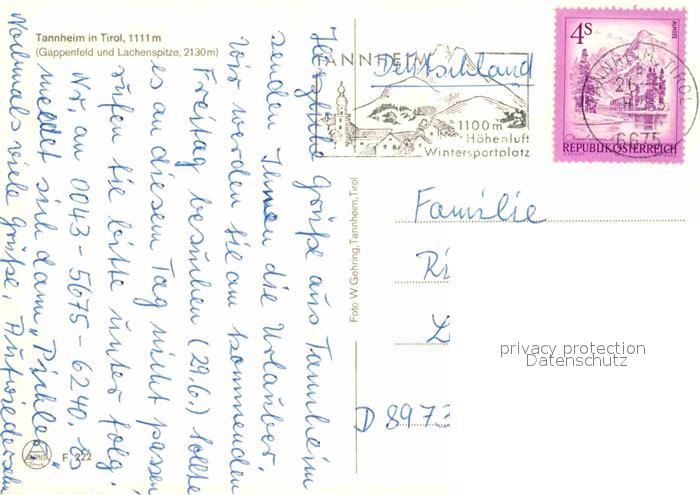 Tannheim in Tirol, 1111 m
(Gappenfeld und Lachenspitze, 2130 m)
Herzliche Grüße aus Tannheim
senden Ihnen die Urlauber.
Wir werden Sie am kommenden
Freitag besuchen (29.6.) sollte
es an diesem Tag nicht passen
rufen Sie bitte unter folg.
Nr. an 0043-5675-6240. Es
meldet sich dann "Pichler"
Nochmals viele Grüße, Aufwiedersehn
F. 222
Foto W. Gehring, Tannheim, Tirol
TANNHEIM
Deutschland
1100 m
Höhenluft
Wintersportplatz
ALMSEE
4S
REPUBLIK ÖSTERREICH
TANNHEIM, TIROL
6675
Familie
Ri
L
D 8973
privacy protection
Datenschutz